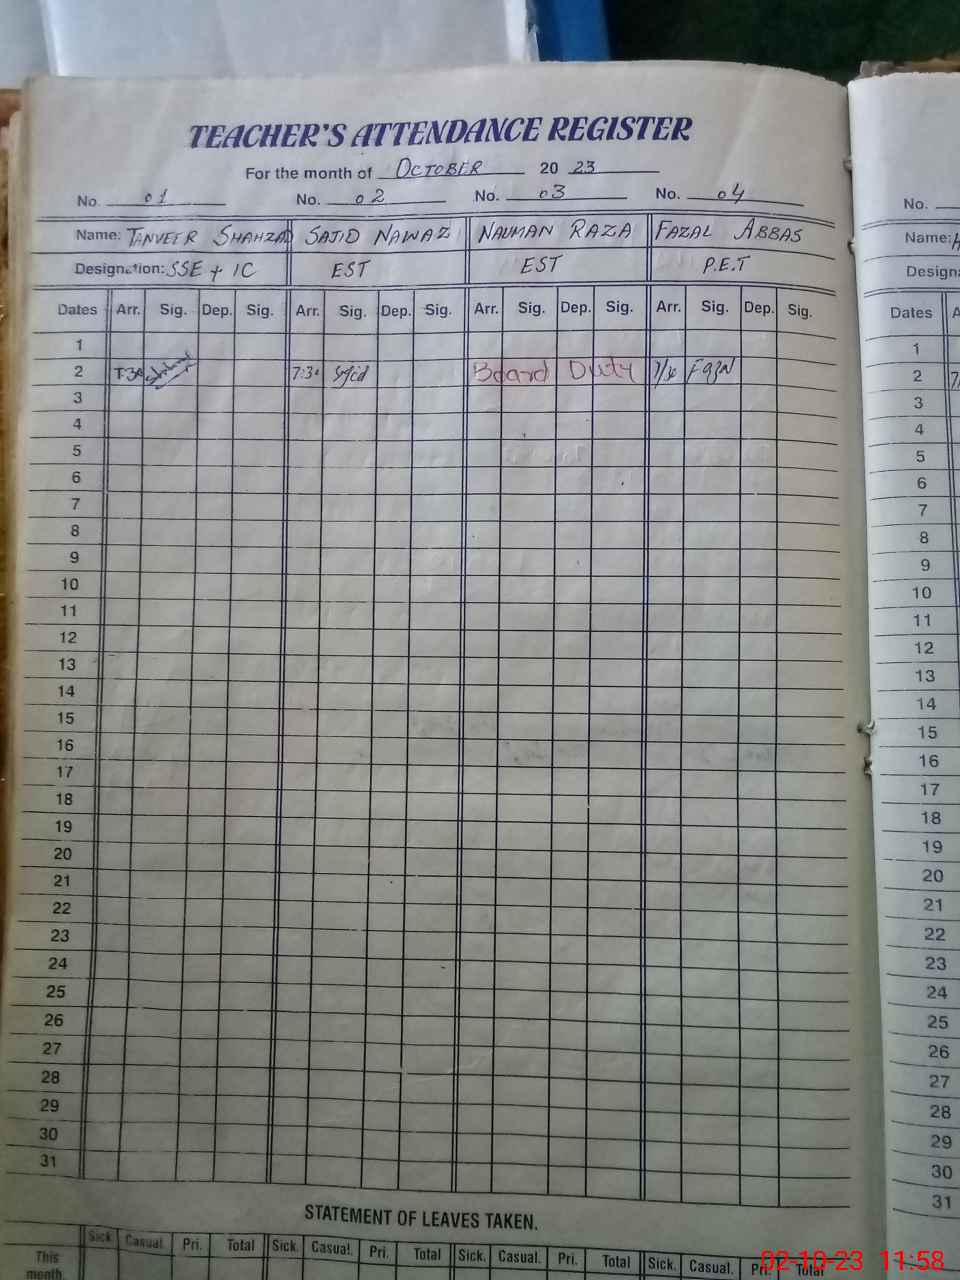 TEACHER'S ATTENDANCE REGISTER
For the month of OCTOBER 20 23
No. 01 No. 02 No. 03 No. 04
Name: TANVEER SHAHZAD SAJID NAWAZ NAUMAN RAZA FAZAL ABBAS
Designation: SSE + IC EST EST P.E.T
Dates Arr. Sig. Dep. Sig. Arr. Sig. Dep. Sig. Arr. Sig. Dep. Sig. Arr. Sig. Dep. Sig.
1
2 7:30 7:30 Sajid Board Duty 7/30 Fazal
3
4
5
6
7
8
9
10
11
12
13
14
15
16
17
18
19
20
21
22
23
24
25
26
27
28
29
30
31
STATEMENT OF LEAVES TAKEN.
Sick. Casual. Pri. Total Sick. Casual. Pri. Total Sick. Casual. Pri. Total Sick. Casual. Pri. Total
This
month.
No.
Name:
Dates
1
2
3
4
5
6
7
8
9
10
11
12
13
14
15
16
17
18
19
20
21
22
23
24
25
26
27
28
29
30
31
02-10-23 11:58